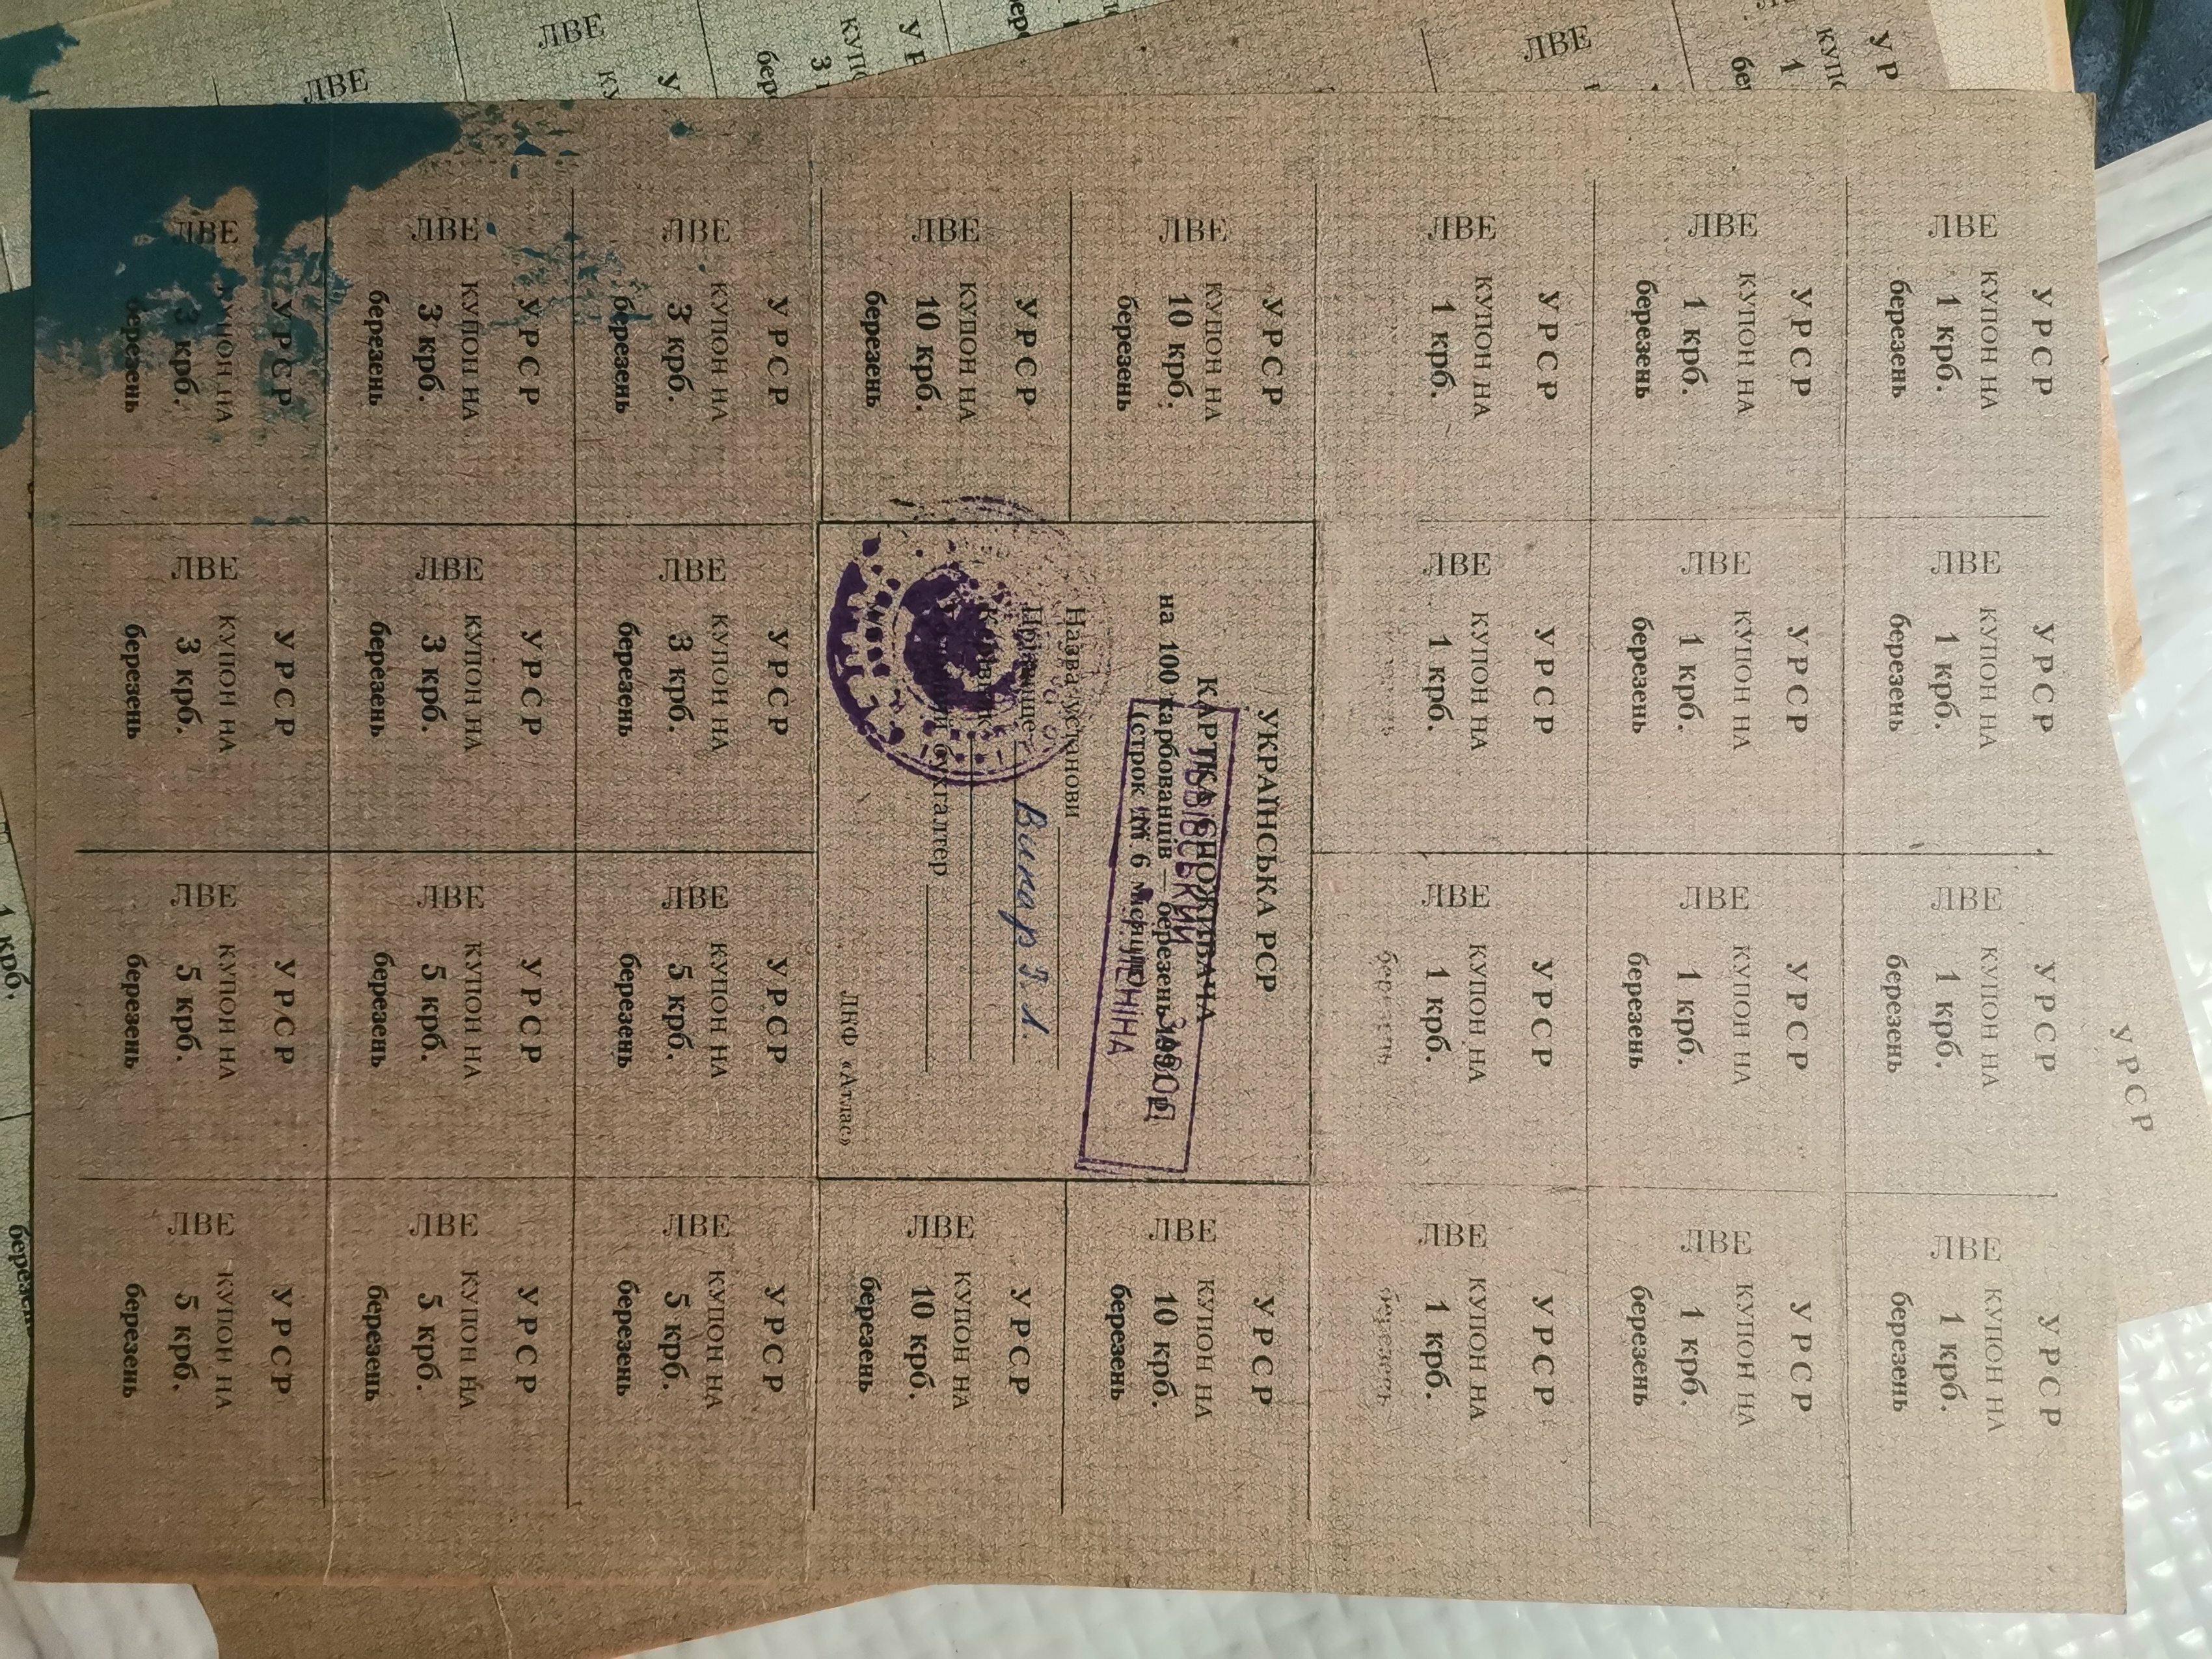 ЛВЕ
УРСР
КУПОН НА
1 крб.
березень
ЛВЕ
УРСР
КУПОН НА
1 крб.
березень
ЛВЕ
УРСР
КУПОН НА
1 крб.
березень
ЛВЕ
УРСР
КУПОН НА
1 крб.
березень
ЛВЕ
УРСР
КУПОН НА
1 крб.
березень
ЛВЕ
УРСР
КУПОН НА
1 крб.
березень
ЛВЕ
УРСР
КУПОН НА
1 крб.
березень
ЛВЕ
УРСР
КУПОН НА
1 крб.
березень
ЛВЕ
УРСР
КУПОН НА
1 крб.
ЛВЕ
УРСР
КУПОН НА
1 крб.
ЛВЕ
УРСР
КУПОН НА
1 крб.
березень
ЛВЕ
УРСР
КУПОН НА
1 крб.
березень
ЛВЕ
УРСР
КУПОН НА
10 крб.
березень
ЛВЕ
УРСР
КУПОН НА
10 крб.
березень
УКРАЇНСЬКА РСР
КАРТКА СПОЖИВАЧА
на 100 карбованців — березень
(строк 6
ЛЬВІВСЬКИЙ
ЗАВОД
ЛЕНІНА
Назва установи
Прізвище
Керівник
бухгалтер
ЛКФ «Атлас»
ЛВЕ
УРСР
КУПОН НА
10 крб.
березень
ЛВЕ
УРСР
КУПОН НА
10 крб.
березень
ЛВЕ
УРСР
КУПОН НА
3 крб.
березень
ЛВЕ
УРСР
КУПОН НА
3 крб.
березень
ЛВЕ
УРСР
КУПОН НА
5 крб.
березень
ЛВЕ
УРСР
КУПОН НА
5 крб.
березень
ЛВЕ
УРСР
КУПОН НА
3 крб.
березень
ЛВЕ
УРСР
КУПОН НА
3 крб.
березень
ЛВЕ
УРСР
КУПОН НА
5 крб.
березень
ЛВЕ
УРСР
КУПОН НА
5 крб.
березень
ЛВЕ
УРСР
КУПОН НА
3 крб.
березень
ЛВЕ
УРСР
КУПОН НА
3 крб.
березень
ЛВЕ
УРСР
КУПОН НА
5 крб.
березень
ЛВЕ
УРСР
КУПОН НА
5 крб.
березень
УРСР
ЛВЕ
ЛВЕ
ЛВЕ